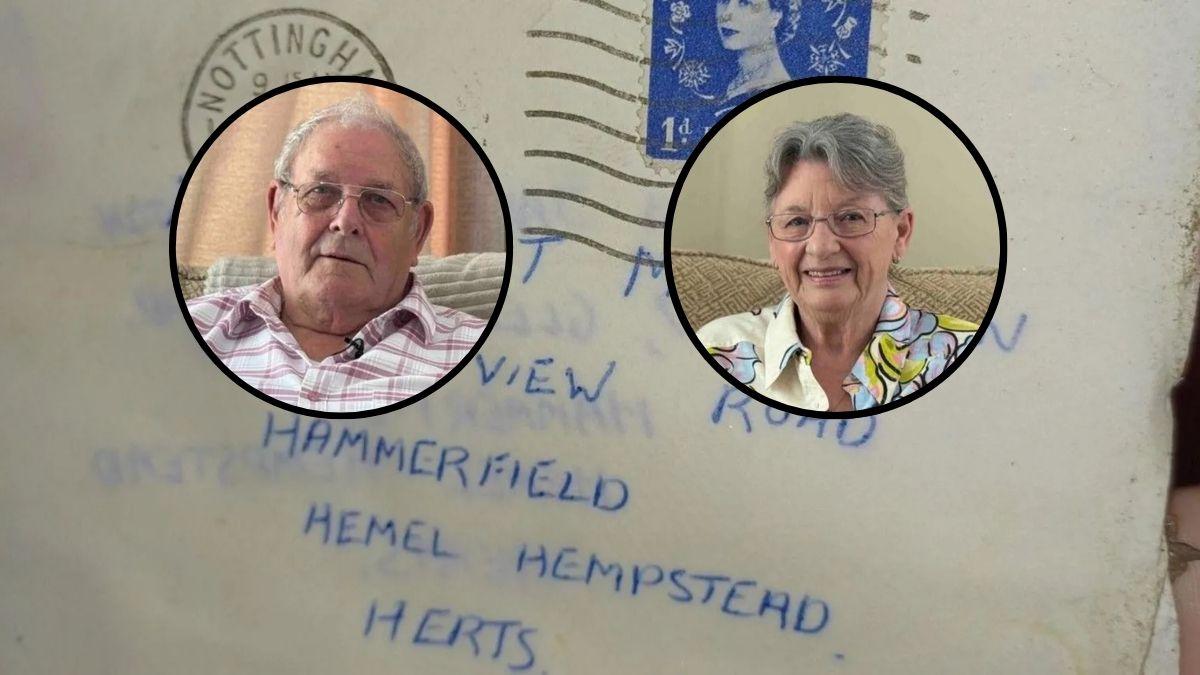 NOTTINGHA
1d
VIEW ROAD
HAMMERFIELD
HEMEL HEMPSTEAD
HERTS.